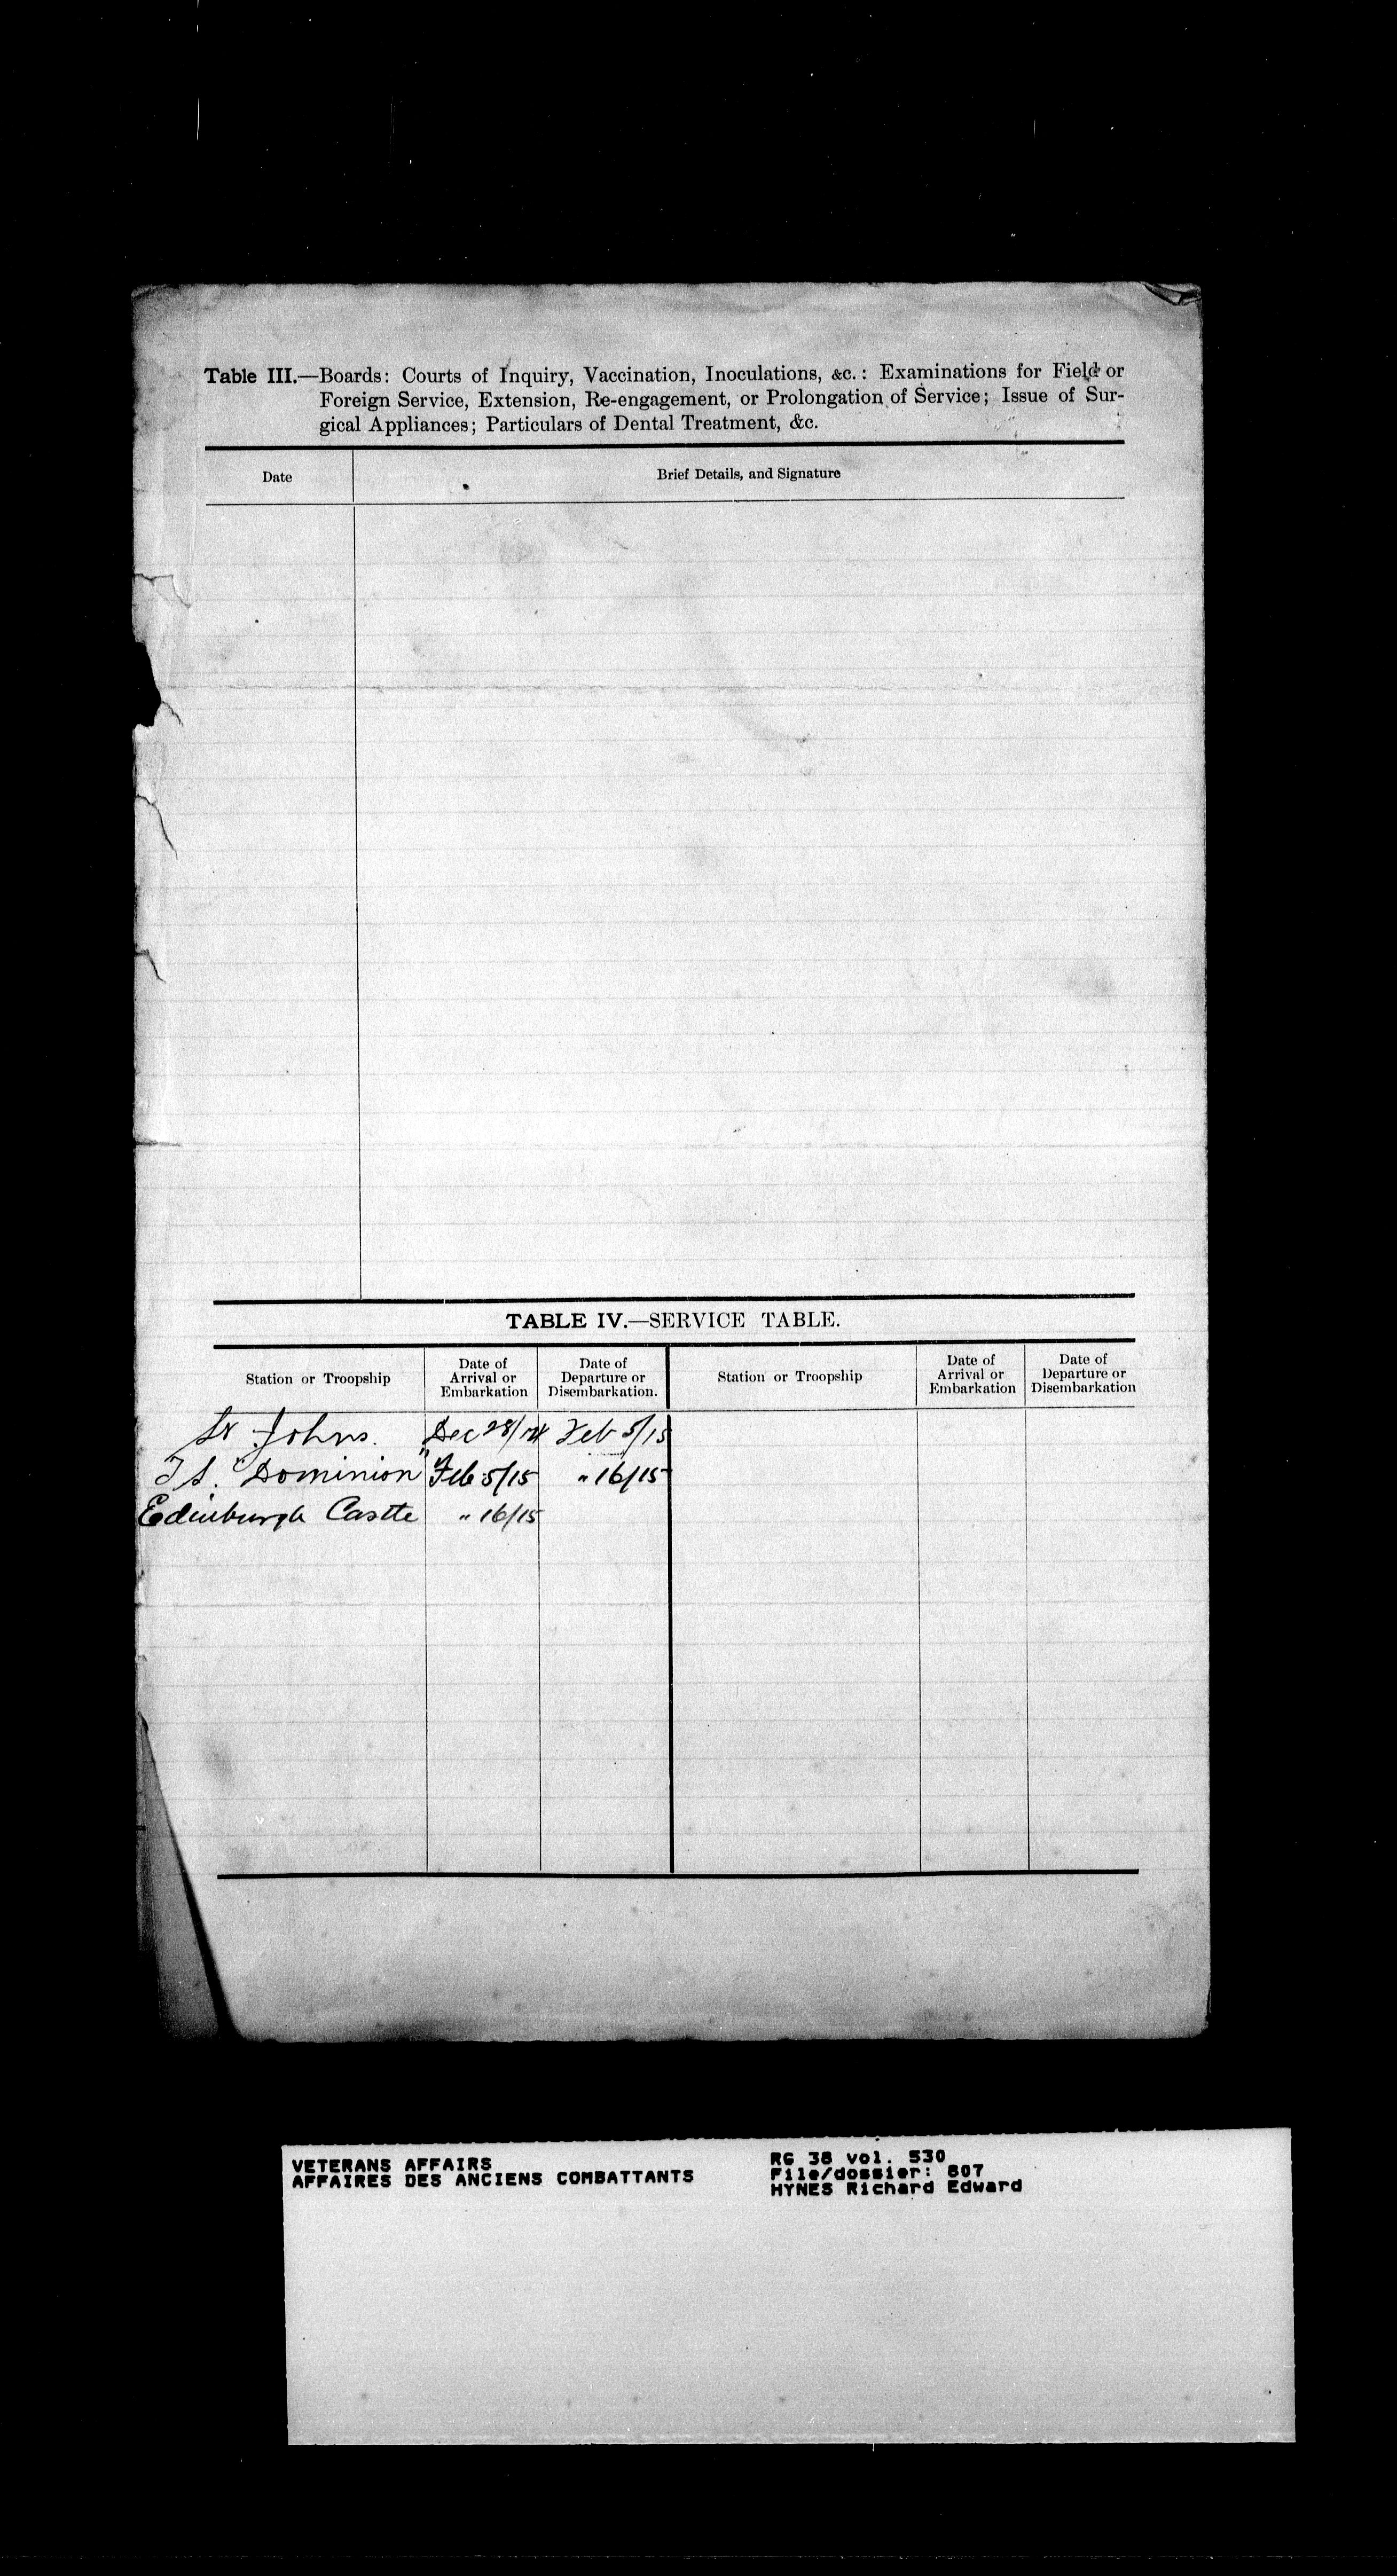 Table III.—Boards: Courts of Inquiry, Vaccination, Inoculations, &c.: Examinations for Field or
Foreign Service, Extension, Re-engagement, or Prolongation of Service; Issue of Sur-
gical Appliances; Particulars of Dental Treatment, &c.
Date Brief Details, and Signature
TABLE IV.—SERVICE TABLE.
Station or Troopship Date of Arrival or Embarkation Date of Departure or Disembarkation. Station or Troopship Date of Arrival or Embarkation Date of Departure or Disembarkation
St Johns. Dec 28/14 Feb 5/15
T S. "Dominion" Feb 5/15 " 16/15
Edinburgh Castle " 16/15
VETERANS AFFAIRS
AFFAIRES DES ANCIENS COMBATTANTS
RG 38 vol. 530
File/dossier: 807
HYNES Richard Edward